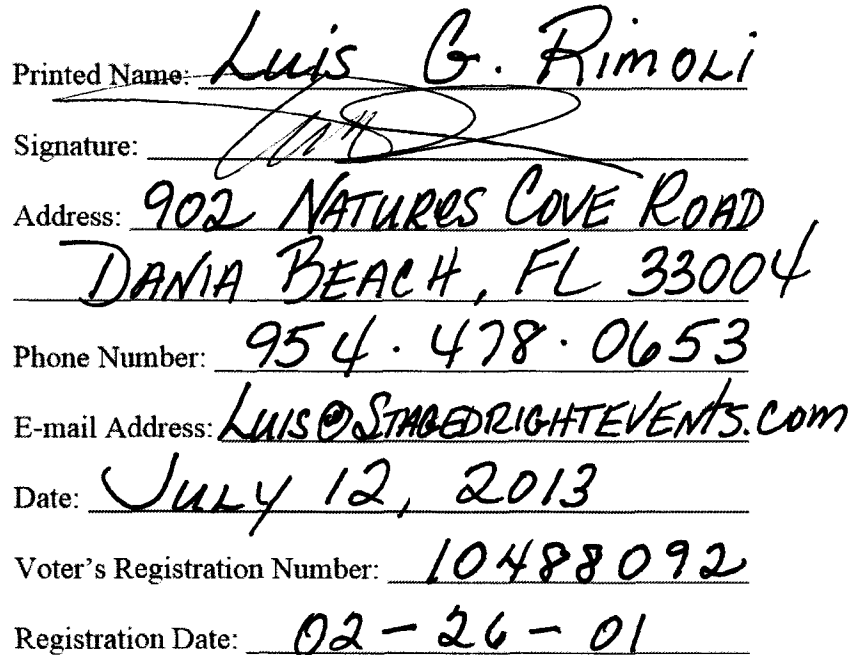 Printed Name: Luis G. Rimoli
Signature:
Address: 902 NATURES COVE ROAD
DANIA BEACH, FL 33004
Phone Number: 954.478.0653
E-mail Address: LUIS@STAGEDRIGHTEVENTS.COM
Date: JULY 12, 2013
Voter's Registration Number: 10488092
Registration Date: 02-26-01